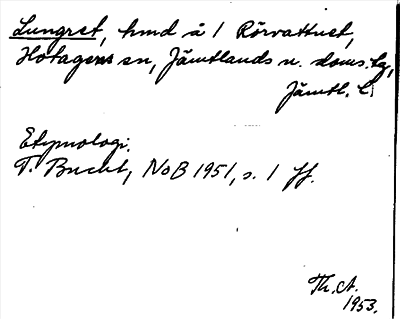 Lungret, hmd å 1 Rörvattnet,
Hotagens sn, Jämtlands n. doms.
Jämtl. L
Etymologi.
T. Bucht, NoB 1951, s. 1 ff.
Th. A.
1953.